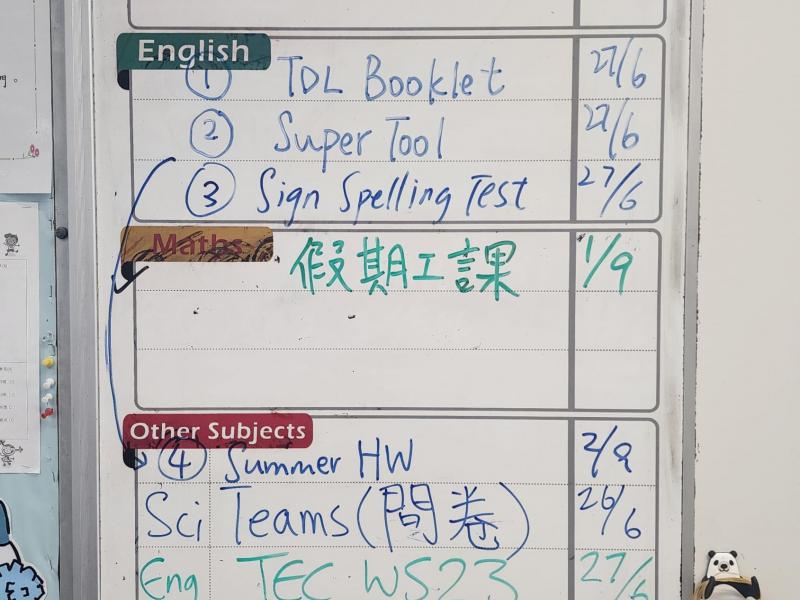 English
① TDL Booklet 27/6
② Super Tool 27/6
③ Sign Spelling Test 27/6
Maths
假期工課 1/9
Other Subjects
④ Summer HW 2/9
Sci Teams (問卷) 26/6
Eng TEC WS23 27/6